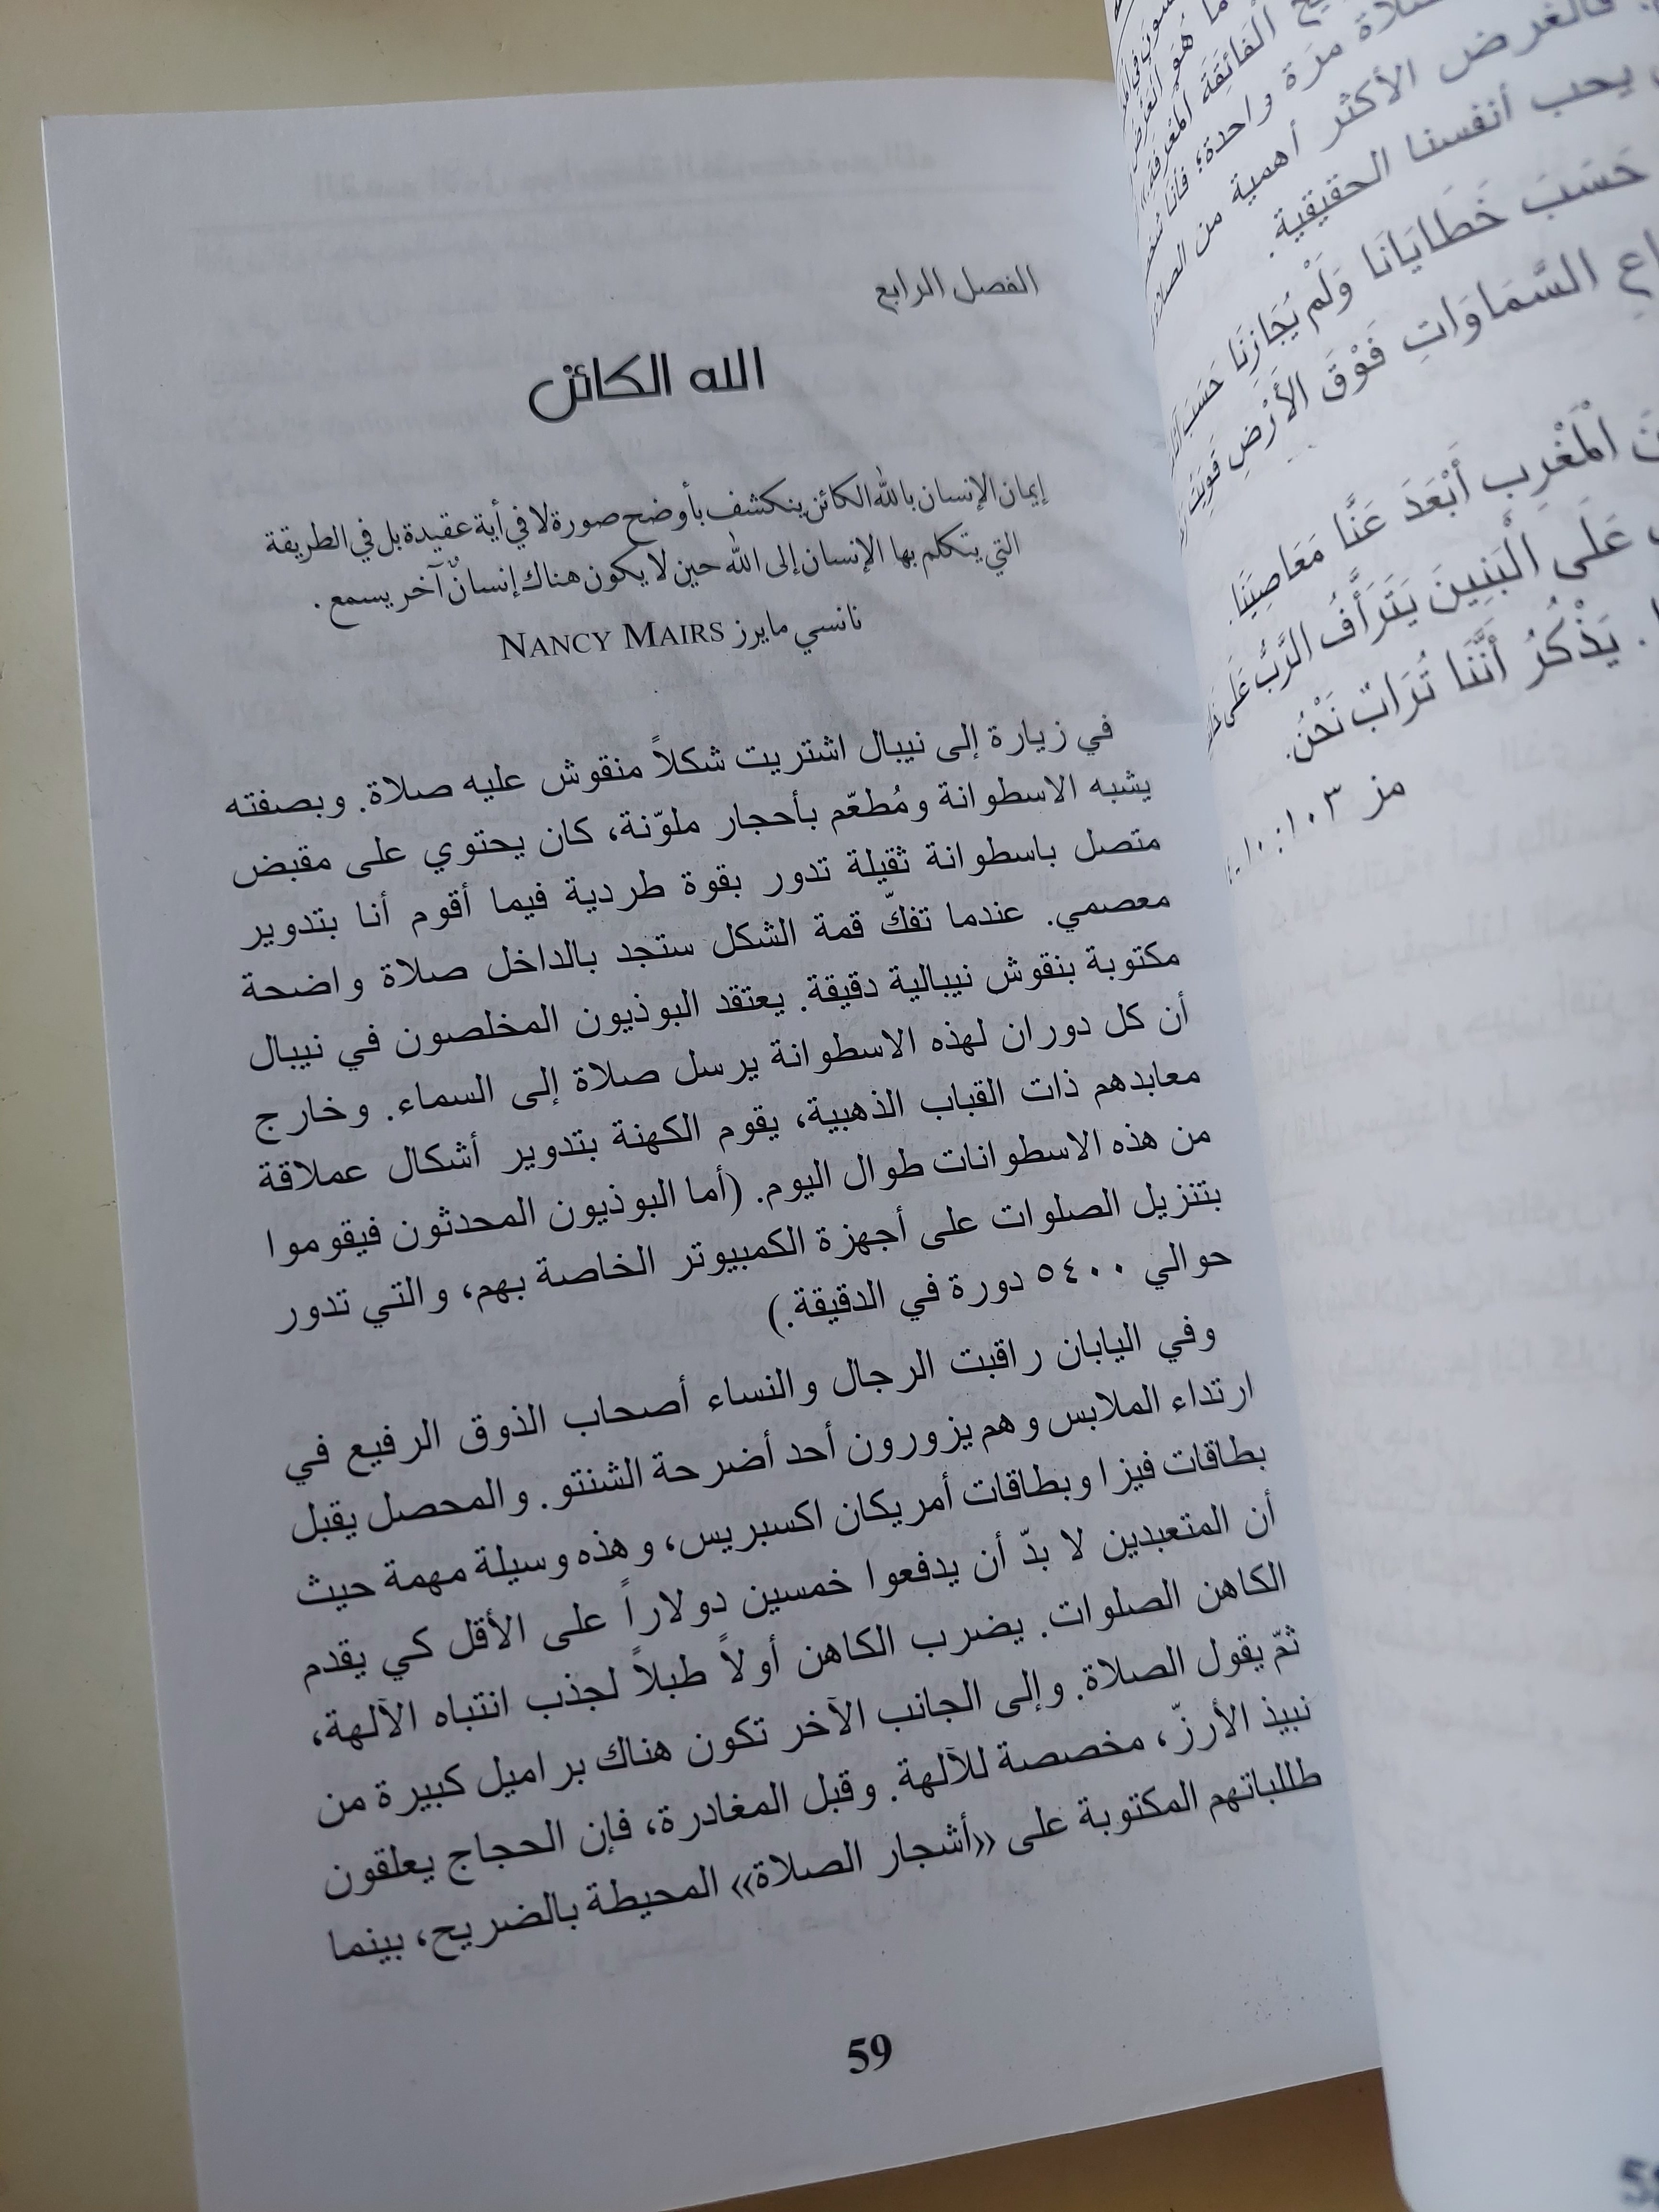 الفصل الرابع
الله الكائن
إيمان الإنسان بالله الكائن ينكشف بأوضح صورة لا في أية عقيدة بل في الطريقة
التي يتكلم بها الإنسان إلى الله حين لا يكون هناك إنسانٌ آخر يسمع.
نانسي مايرز NANCY MAIRS
في زيارة إلى نيبال اشتريت شكلاً منقوش عليه صلاة. وبصفته
يشبه الاسطوانة ومُطعّم بأحجار ملوّنة، كان يحتوي على مقبض
متصل باسطوانة ثقيلة تدور بقوة طردية فيما أقوم أنا بتدوير
معصمي. عندما تفكّ قمة الشكل ستجد بالداخل صلاة واضحة
مكتوبة بنقوش نيبالية دقيقة. يعتقد البوذيون المخلصون في نيبال
أن كل دوران لهذه الاسطوانة يرسل صلاة إلى السماء. وخارج
معابدهم ذات القباب الذهبية، يقوم الكهنة بتدوير أشكال عملاقة
من هذه الاسطوانات طوال اليوم. (أما البوذيون المحدثون فيقوموا
بتنزيل الصلوات على أجهزة الكمبيوتر الخاصة بهم، والتي تدور
حوالي ٥٤٠٠ دورة في الدقيقة.)
وفي اليابان راقبت الرجال والنساء أصحاب الذوق الرفيع في
ارتداء الملابس وهم يزورون أحد أضرحة الشنتو. والمحصل يقبل
بطاقات فيزا وبطاقات أمريكان اكسبريس، وهذه وسيلة مهمة حيث
أن المتعبدين لا بدّ أن يدفعوا خمسين دولاراً على الأقل كي يقدم
الكاهن الصلوات. يضرب الكاهن أولاً طبلاً لجذب انتباه الآلهة،
ثمّ يقول الصلاة. وإلى الجانب الآخر تكون هناك براميل كبيرة من
نبيذ الأرزّ، مخصصة للآلهة. وقبل المغادرة، فإن الحجاج يعلقون
طلباتهم المكتوبة على «أشجار الصلاة» المحيطة بالضريح، بينما
59
الْفَائِقَةِ الْمَعْرِفَةِ»
صلاة مرّة واحدة؛ فأنا
فالغرض الأكثر أهمية من الصلاة
يحب أنفسنا الحقيقية.
حَسَبَ خَطَايَانَا وَلَمْ يُجَازِنَا حَسَبَ
السَّمَاوَاتِ فَوْقَ الأَرْضِ قَوِيَتْ
الْمَغْرِبِ أَبْعَدَ عَنَّا مَعَاصِيَنَا.
عَلَى الْبَنِينَ يَتَرَأَّفُ الرَّبُّ عَلَى
يَذْكُرُ أَنَّنَا تُرَابٌ نَحْنُ.
مز ١٠٣:١٠